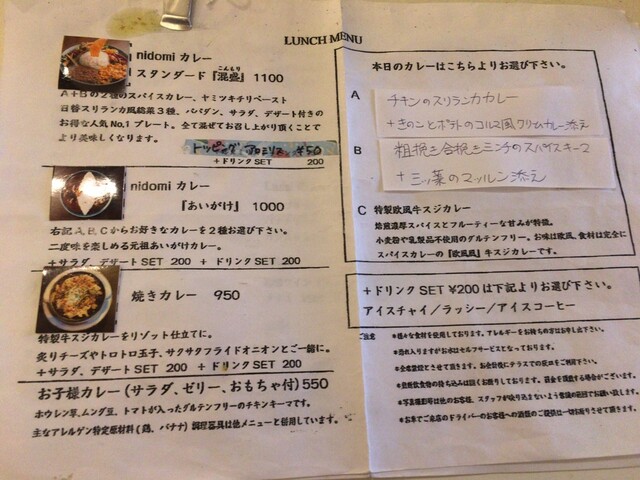 LUNCH MENU
nidomi カレー
スタンダード『混盛』 1100
こんもり
A+Bの2種のスパイスカレー、ヤミツキチリペースト
日替スリランカ風惣菜3種、パパダン、サラダ、デザート付きの
お得な人気No,1 プレート。全て混ぜてお召し上がり頂くことで
より美味しくなります。
トッピング アロミリス ¥50
+ドリンクSET 200
nidomi カレー
『あいがけ』 1000
右記ABCからお好きなカレーを2種お選び下さい。
二度味を楽しめる元祖あいがけカレー。
+サラダ、デザートSET 200 +ドリンクSET 200
焼きカレー 950
特製牛スジカレーをリゾット仕立てに。
炙りチーズやトロトロ玉子、サクサクフライドオニオンとご一緒に。
+サラダ、デザートSET 200 +ドリンクSET 200
お子様カレー(サラダ、ゼリー、おもちゃ付)550
ホウレン草、ムング豆、トマトが入ったグルテンフリーのチキンキーマです。
主なアレルゲン特定原材料(鶏、バナナ)調理器具は他メニューと併用しています。
本日のカレーはこちらよりお選び下さい。
A
チキンのスリランカカレー
+きのことポテトのコルマ風クリームカレー添え
B
粗挽き合挽きミンチのスパイスキーマ
+三ッ葉のマッルン添え
C 特製欧風牛スジカレー
焙煎濃厚スパイスとフルーティーな甘みが特徴。
小麦粉や乳製品不使用のグルテンフリー。お味は欧風、食後は完全に
スパイスカレーの『欧風風』牛スジカレーです。
+ドリンクSET ¥200 は下記よりお選び下さい。
アイスチャイ/ラッシー/アイスコーヒー
ご注意
*様々な食材を使用しております。アレルギーをお持ちの方はお申し出下さい。
*恐れ入りますがお水はセルフサービスとなっております。
*全席禁煙とさせて頂きます。お会計後にテラスでの喫煙をご利用下さい。